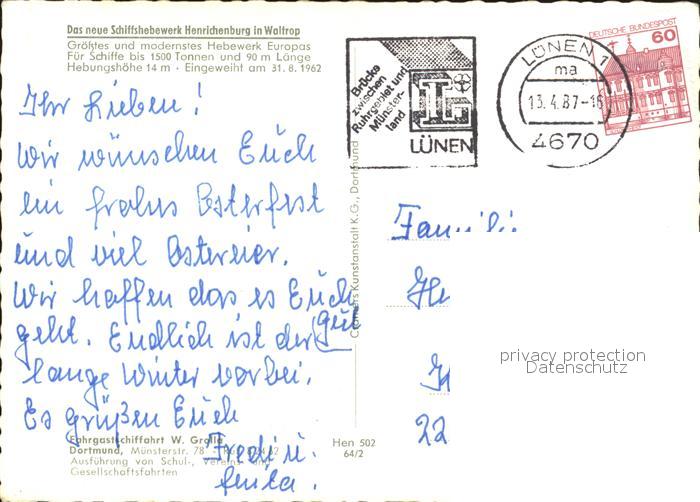 Das neue Schiffshebewerk Henrichenburg in Waltrop
Größtes und modernstes Hebewerk Europas
Für Schiffe bis 1500 Tonnen und 90 m Länge
Hebungshöhe 14 m · Eingeweiht am 31. 8. 1962
Ihr Lieben!
Wir wünschen Euch
ein frohes Osterfest
und viel Ostereier.
Wir hoffen das es Euch
gut
geht. Endlich ist der
lange Winter vorbei.
Es grüßen Euch
Fredi u.
Fahrgastschiffahrt W. Grolla
Dortmund, Münsterstr. 78
Ausführung von Schul-, Vereins- und
Gesellschaftsfahrten
Hen 502
64/2
Cramers Kunstanstalt K.G., Dortmund
Brücke
zwischen
Ruhrgebiet und
Münster-
land
LÜNEN
LÜNEN 1
ma
13.4.87-16
4670
DEUTSCHE BUNDESPOST
60
22
privacy protection
Datenschutz